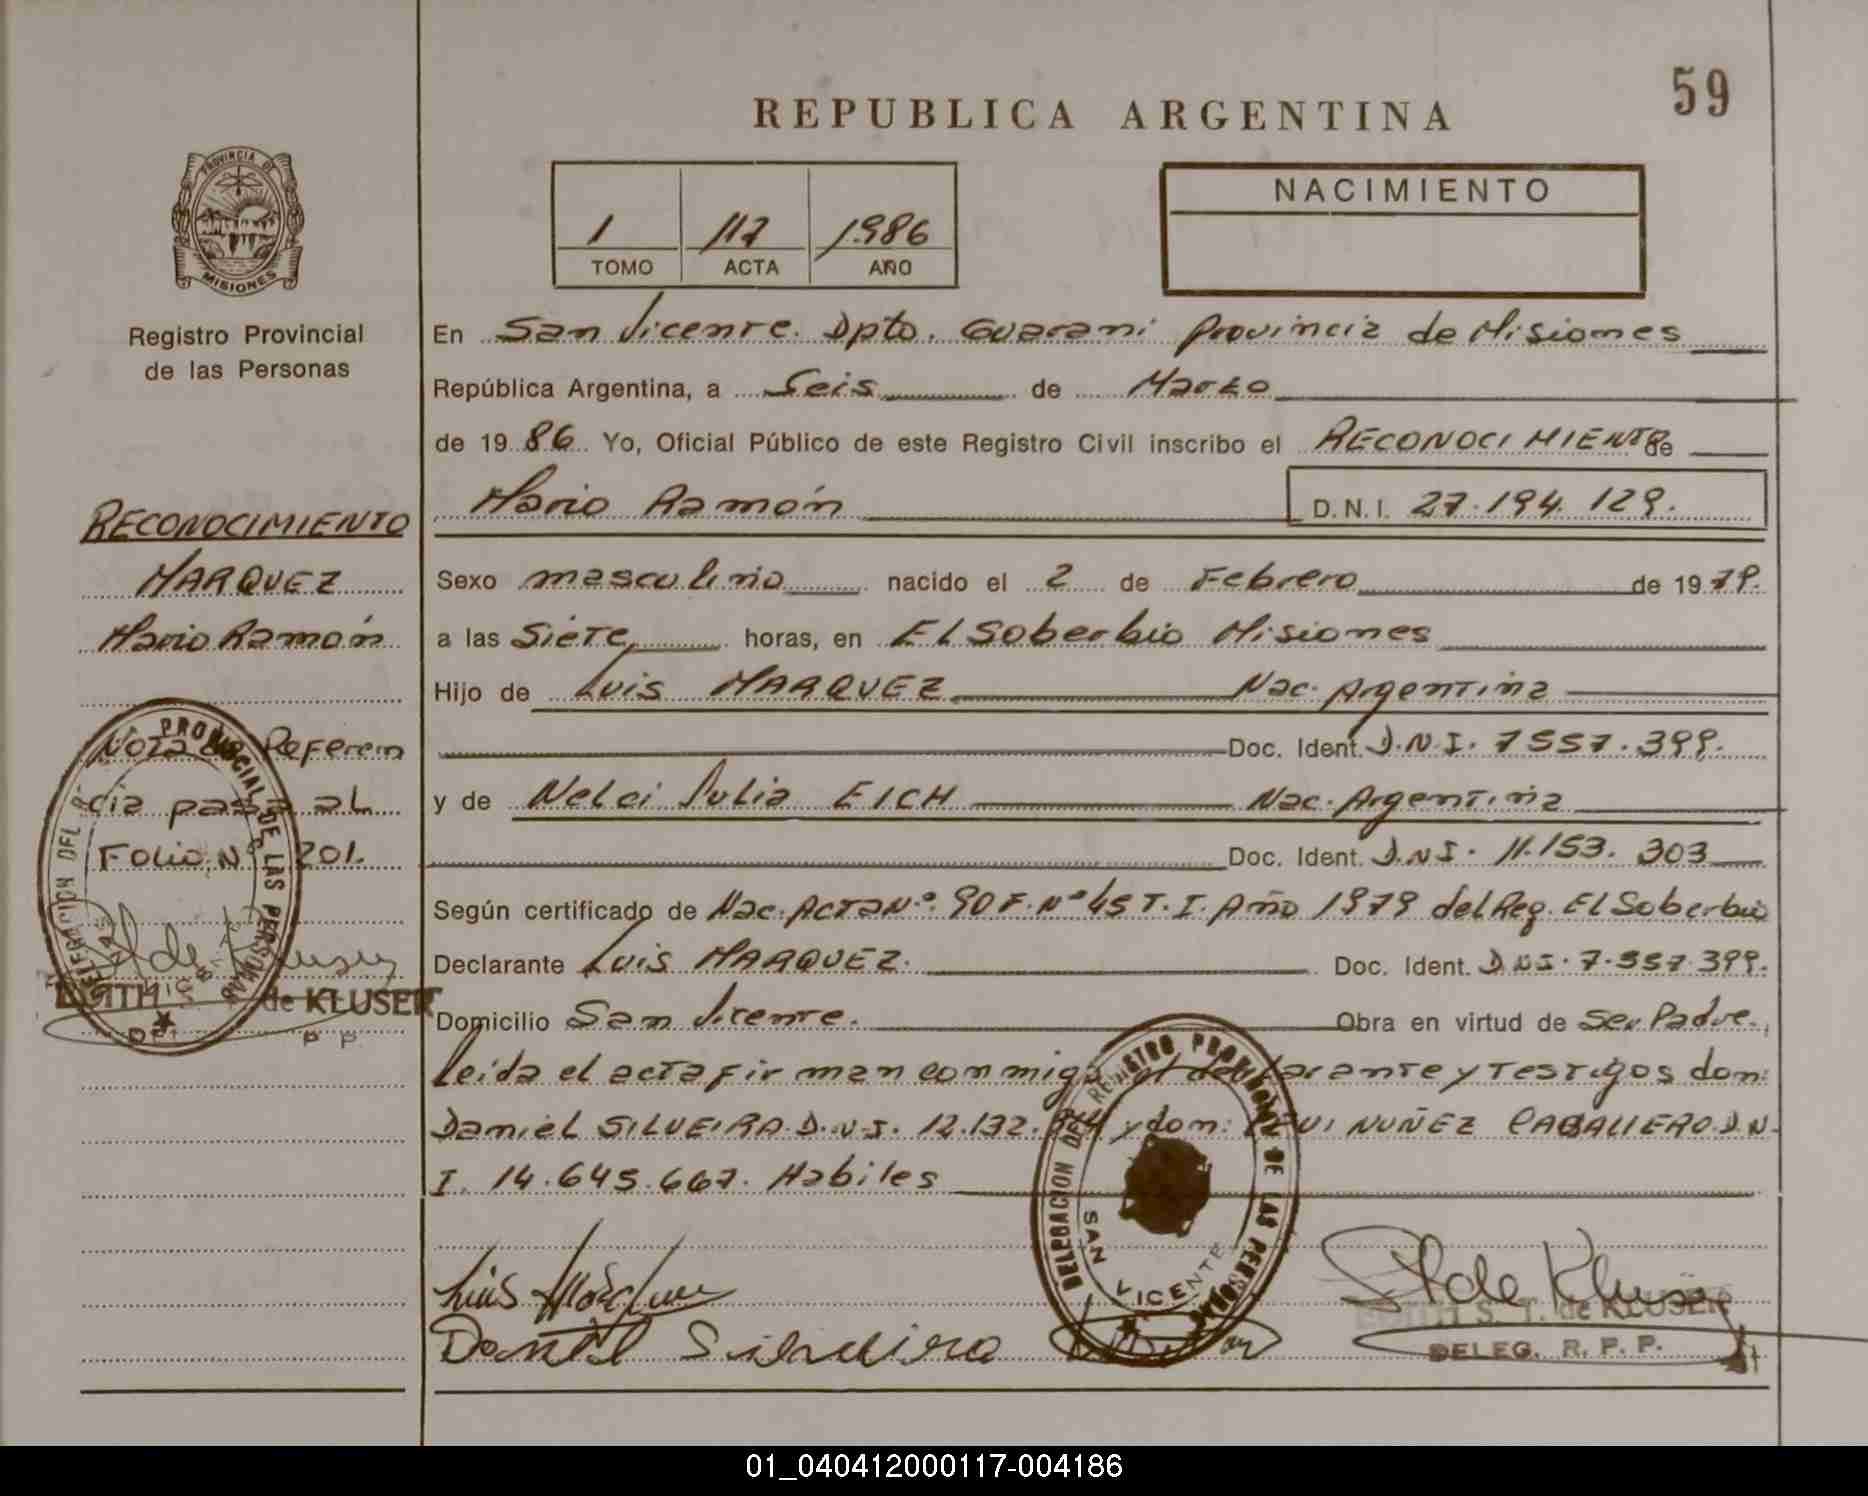 59
REPUBLICA ARGENTINA
PROVINCIA DE
MISIONES
Registro Provincial
de las Personas
1 117 1986
TOMO ACTA AÑO
NACIMIENTO
En San Vicente. Dpto. Guarani Provincia de Misiones
República Argentina, a Seis de Marzo
de 1986 Yo, Oficial Público de este Registro Civil inscribo el RECONOCIMIENTO de
Mario Ramón D.N.I. 27.194.129.
Sexo masculino nacido el 2 de Febrero de 1979.
a las Siete horas, en El Soberbio Misiones
Hijo de Luis MARQUEZ Nac. Argentina
Doc. Ident. D.N.I. 7557.399.
y de Nelci Julia EICH Nac. Argentina
Doc. Ident. D.N.I. 11.153.303
Según certificado de Nac. Acta N.º 90 F. Nº 45 T. I. Año 1979 del Reg. El Soberbio
Declarante Luis MARQUEZ. Doc. Ident. D.N.I. 7.557.399.
Domicilio San Vicente. Obra en virtud de Ser Padre.
leida el acta firman conmigo el declarante y testigos don:
Daniel SILVEIRA D.N.I. 12.132. y don: NUÑEZ CABALLERO. D.N.
I. 14.645.667. Habiles
RECONOCIMIENTO
MARQUEZ
Mario Ramón
Nota de Referen
cia pasa al
Folio Nº 201.
EDITH S. T. de KLUSER
DELEGACION DEL REGISTRO PROVINCIAL DE LAS PERSONAS
SAN VICENTE
Luis Márquez
Daniel Silveira
EDITH S. T. de KLUSER
DELEG. R. P. P.
01_040412000117-004186